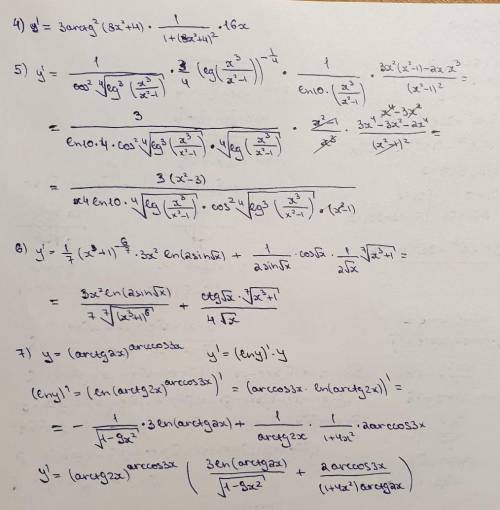 4) y' = 3arctg²(8x²+4) · 1/(1+(8x²+4)²) · 16x
5) y' = 1/(cos² ⁴√(lg³(x³/(x²-1)))) · 3/4 (lg(x³/(x²-1)))^(-1/4) · 1/(ln10 · (x³/(x²-1))) · (3x²(x²-1)-2x·x³)/(x²-1)² =
= 3/(ln10·4·cos² ⁴√(lg³(x³/(x²-1))) · ⁴√(lg(x³/(x²-1)))) · (x²-1)/x³ · (3x⁴-3x²-2x⁴)/(x²-1)² = x⁴-3x²
= 3(x²-3)/(x4ln10 · ⁴√(lg(x³/(x²-1))) · cos² ⁴√(lg³(x³/(x²-1))) · (x²-1))
6) y' = 1/7 (x³+1)^(-6/7) · 3x² ln(2sin√x) + 1/(2sin√x) · cos√x · 1/(2√x) ⁷√(x³+1) =
= 3x² ln(2sin√x)/(7 ⁷√((x³+1)⁶)) + ctg√x · ⁷√(x³+1)/(4√x)
7) y = (arctg2x)^(arccos3x) y' = (lny)' · y
(lny)' = (ln(arctg2x)^(arccos3x))' = (arccos3x · ln(arctg2x))' =
= - 1/√(1-9x²) · 3ln(arctg2x) + 1/(arctg2x) · 1/(1+4x²) · 2arccos3x
y' = (arctg2x)^(arccos3x) (3ln(arctg2x)/√(1-9x²) + 2arccos3x/((1+4x²)arctg2x))